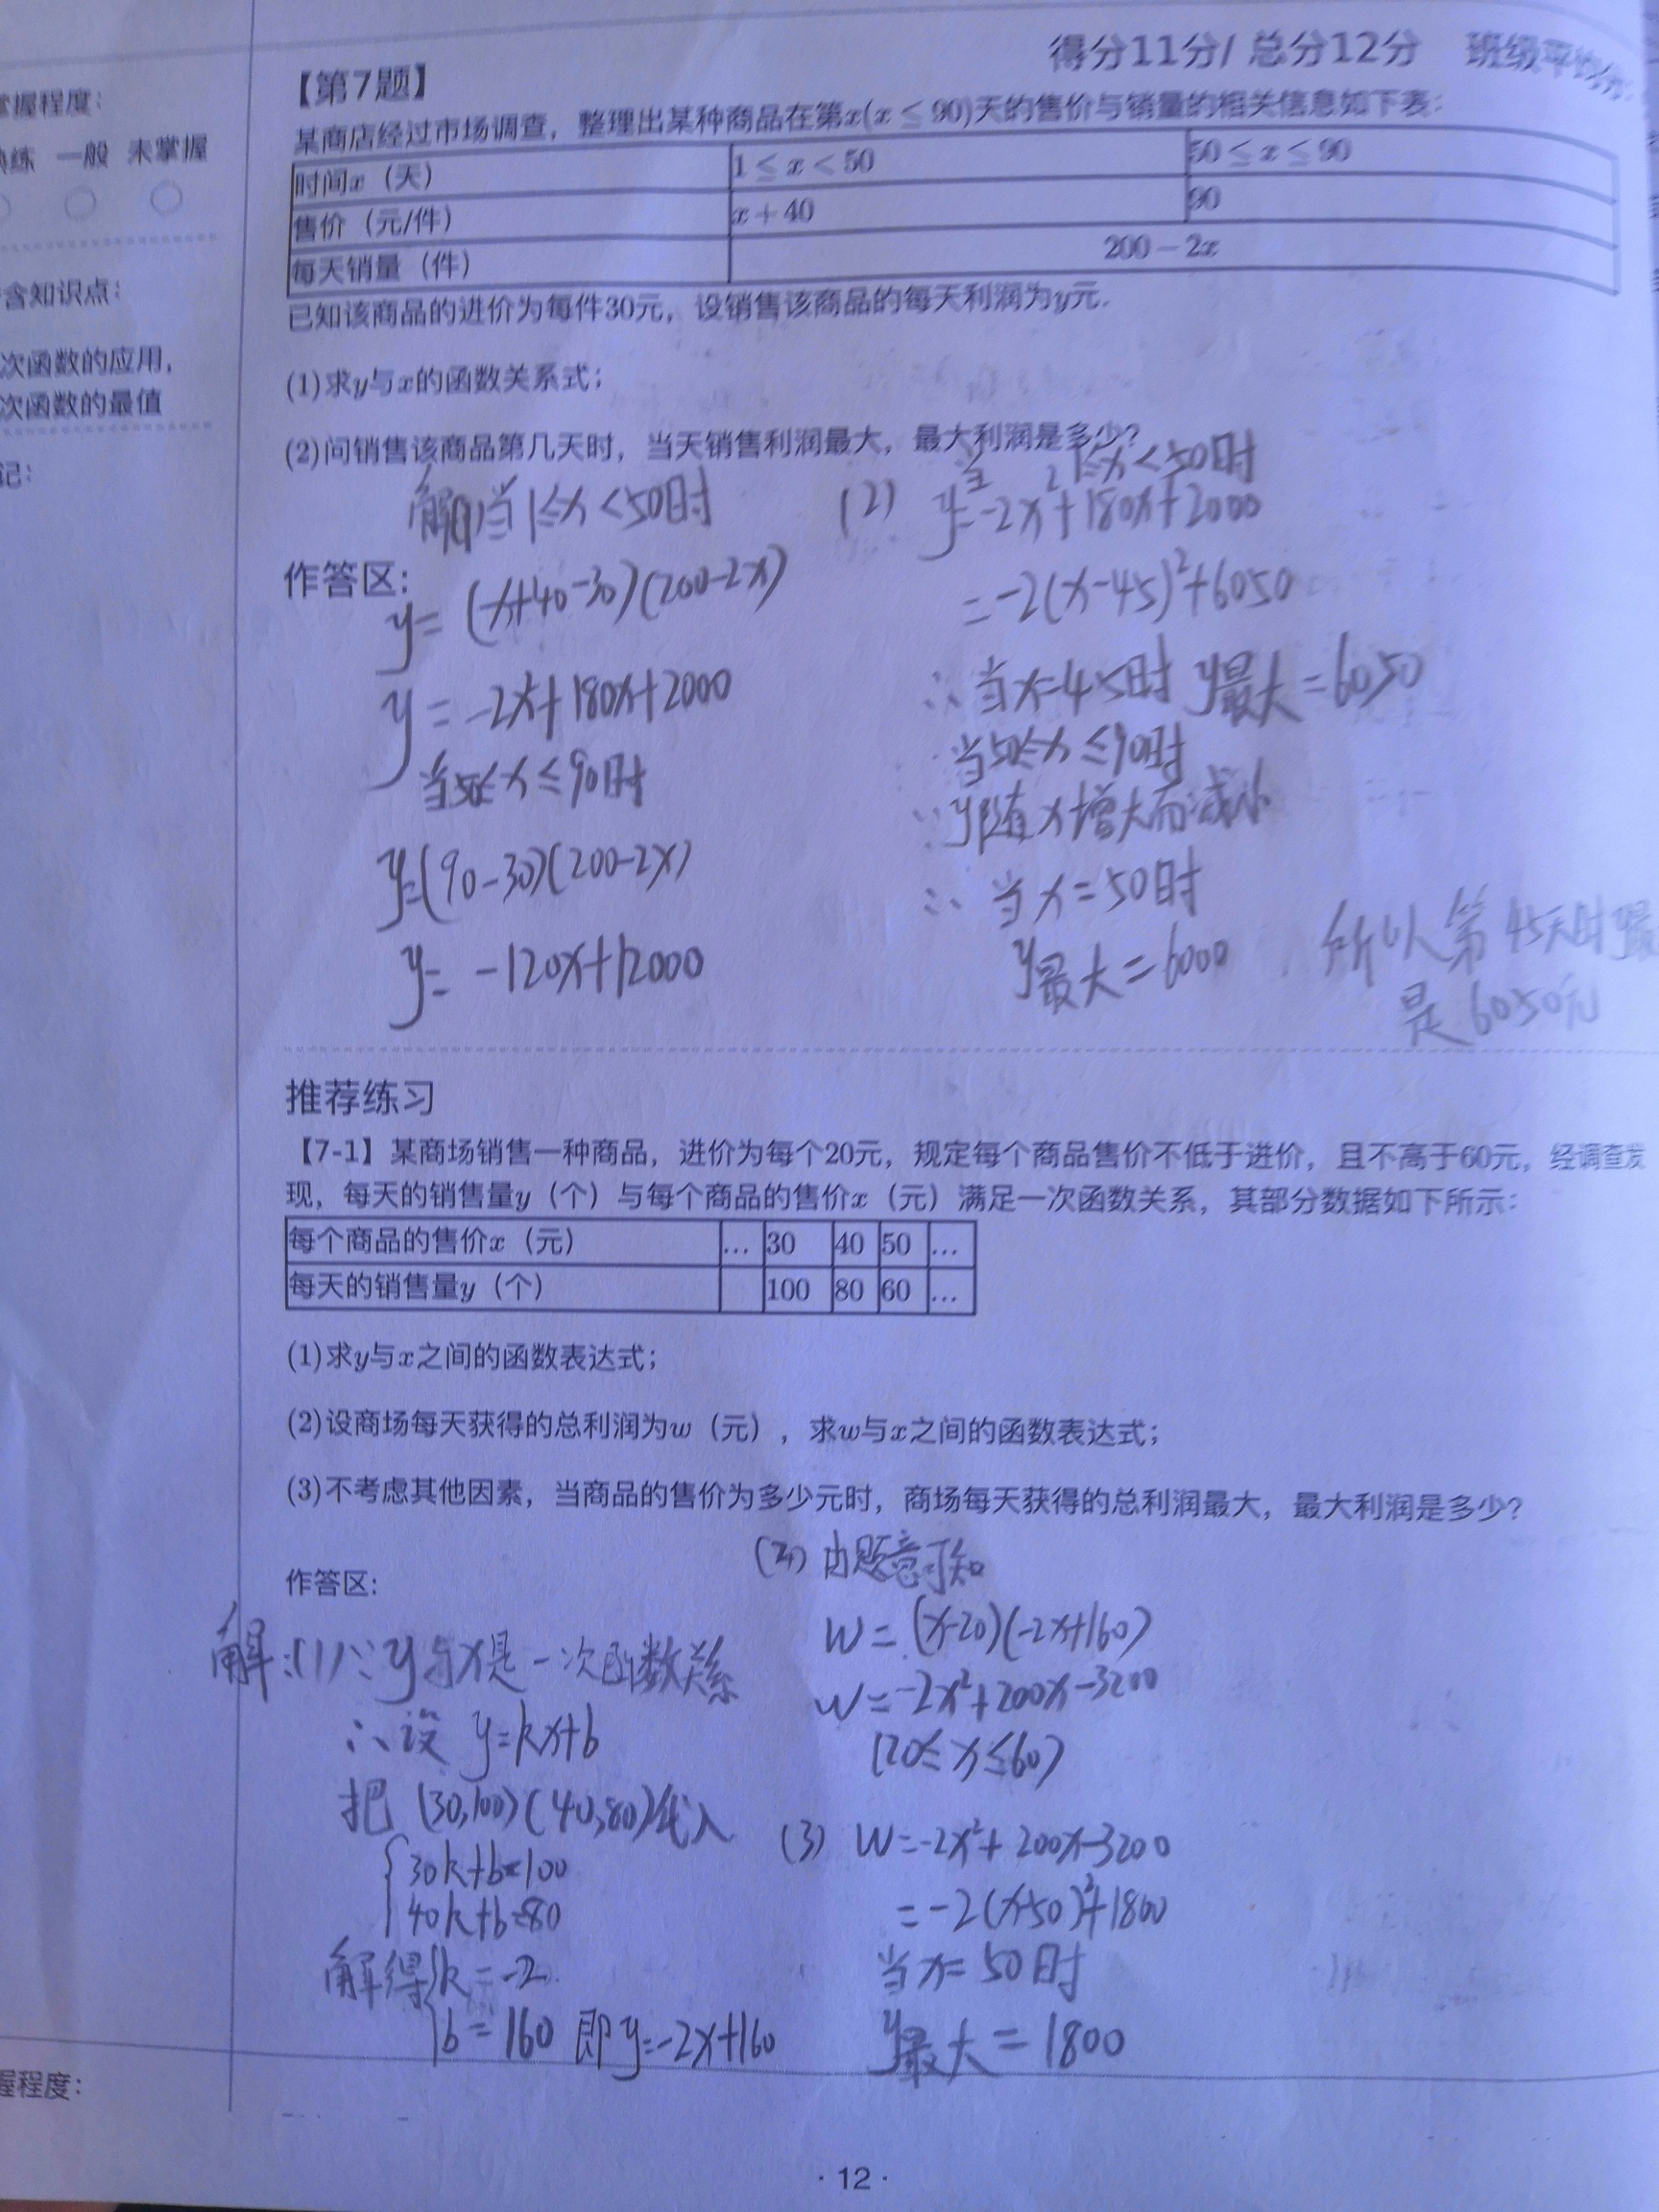 得分11分/ 总分12分 班级平均分:
掌握程度:
熟练 一般 未掌握
含知识点:
次函数的应用,
次函数的最值
记:
【第7题】
某商店经过市场调查，整理出某种商品在第x(x≤90)天的售价与销量的相关信息如下表:
时间x（天） 1≤x<50 50≤x≤90
售价（元/件） x+40 90
每天销量（件） 200-2x
已知该商品的进价为每件30元，设销售该商品的每天利润为y元.
(1)求y与x的函数关系式;
(2)问销售该商品第几天时，当天销售利润最大，最大利润是多少?
作答区:
解(1)当1≤x<50时
y=(x+40-30)(200-2x)
y=-2x²+180x+2000
当50≤x≤90时
y=(90-30)(200-2x)
y=-120x+12000
(2) 当1≤x<50时
y=-2x²+180x+2000
=-2(x-45)²+6050
∴当x=45时 y最大=6050
当50≤x≤90时
∵y随x增大而减小
∴当x=50时
y最大=6000
所以第45天时
是6050元
推荐练习
【7-1】某商场销售一种商品，进价为每个20元，规定每个商品售价不低于进价，且不高于60元，经调查发
现，每天的销售量y（个）与每个商品的售价x（元）满足一次函数关系，其部分数据如下所示:
每个商品的售价x（元） … 30 40 50 …
每天的销售量y（个） 100 80 60 …
(1)求y与x之间的函数表达式;
(2)设商场每天获得的总利润为w（元）, 求w与x之间的函数表达式;
(3)不考虑其他因素，当商品的售价为多少元时，商场每天获得的总利润最大，最大利润是多少?
作答区:
解:(1)∵y与x是一次函数关系
∴设 y=kx+b
把(30,100)(40,80)代入
{30k+b=100
40k+b=80
解得{k=-2
b=160 即y=-2x+160
(2) 由题意可知
W=(x-20)(-2x+160)
W=-2x²+200x-3200
(20≤x≤60)
(3) W=-2x²+200x-3200
=-2(x-50)²+1800
当x=50时
y最大=1800
握程度:
·12·